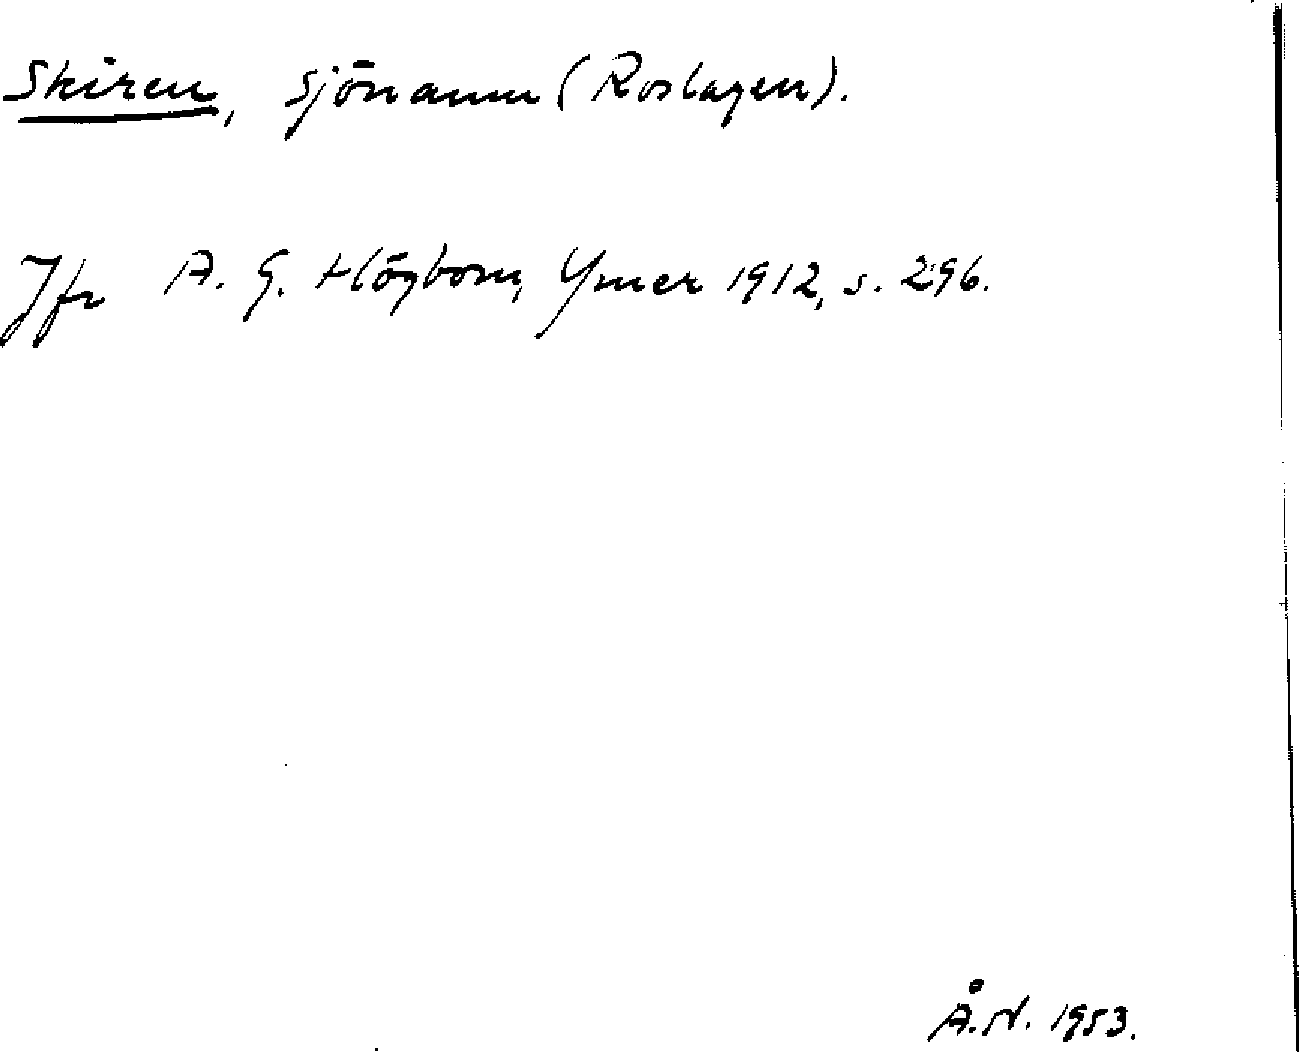 Skiren, sjönamn (Roslagen).
Jfr A. G. Högbom, Ymer 1912, s. 296.
Å.N. 1953.